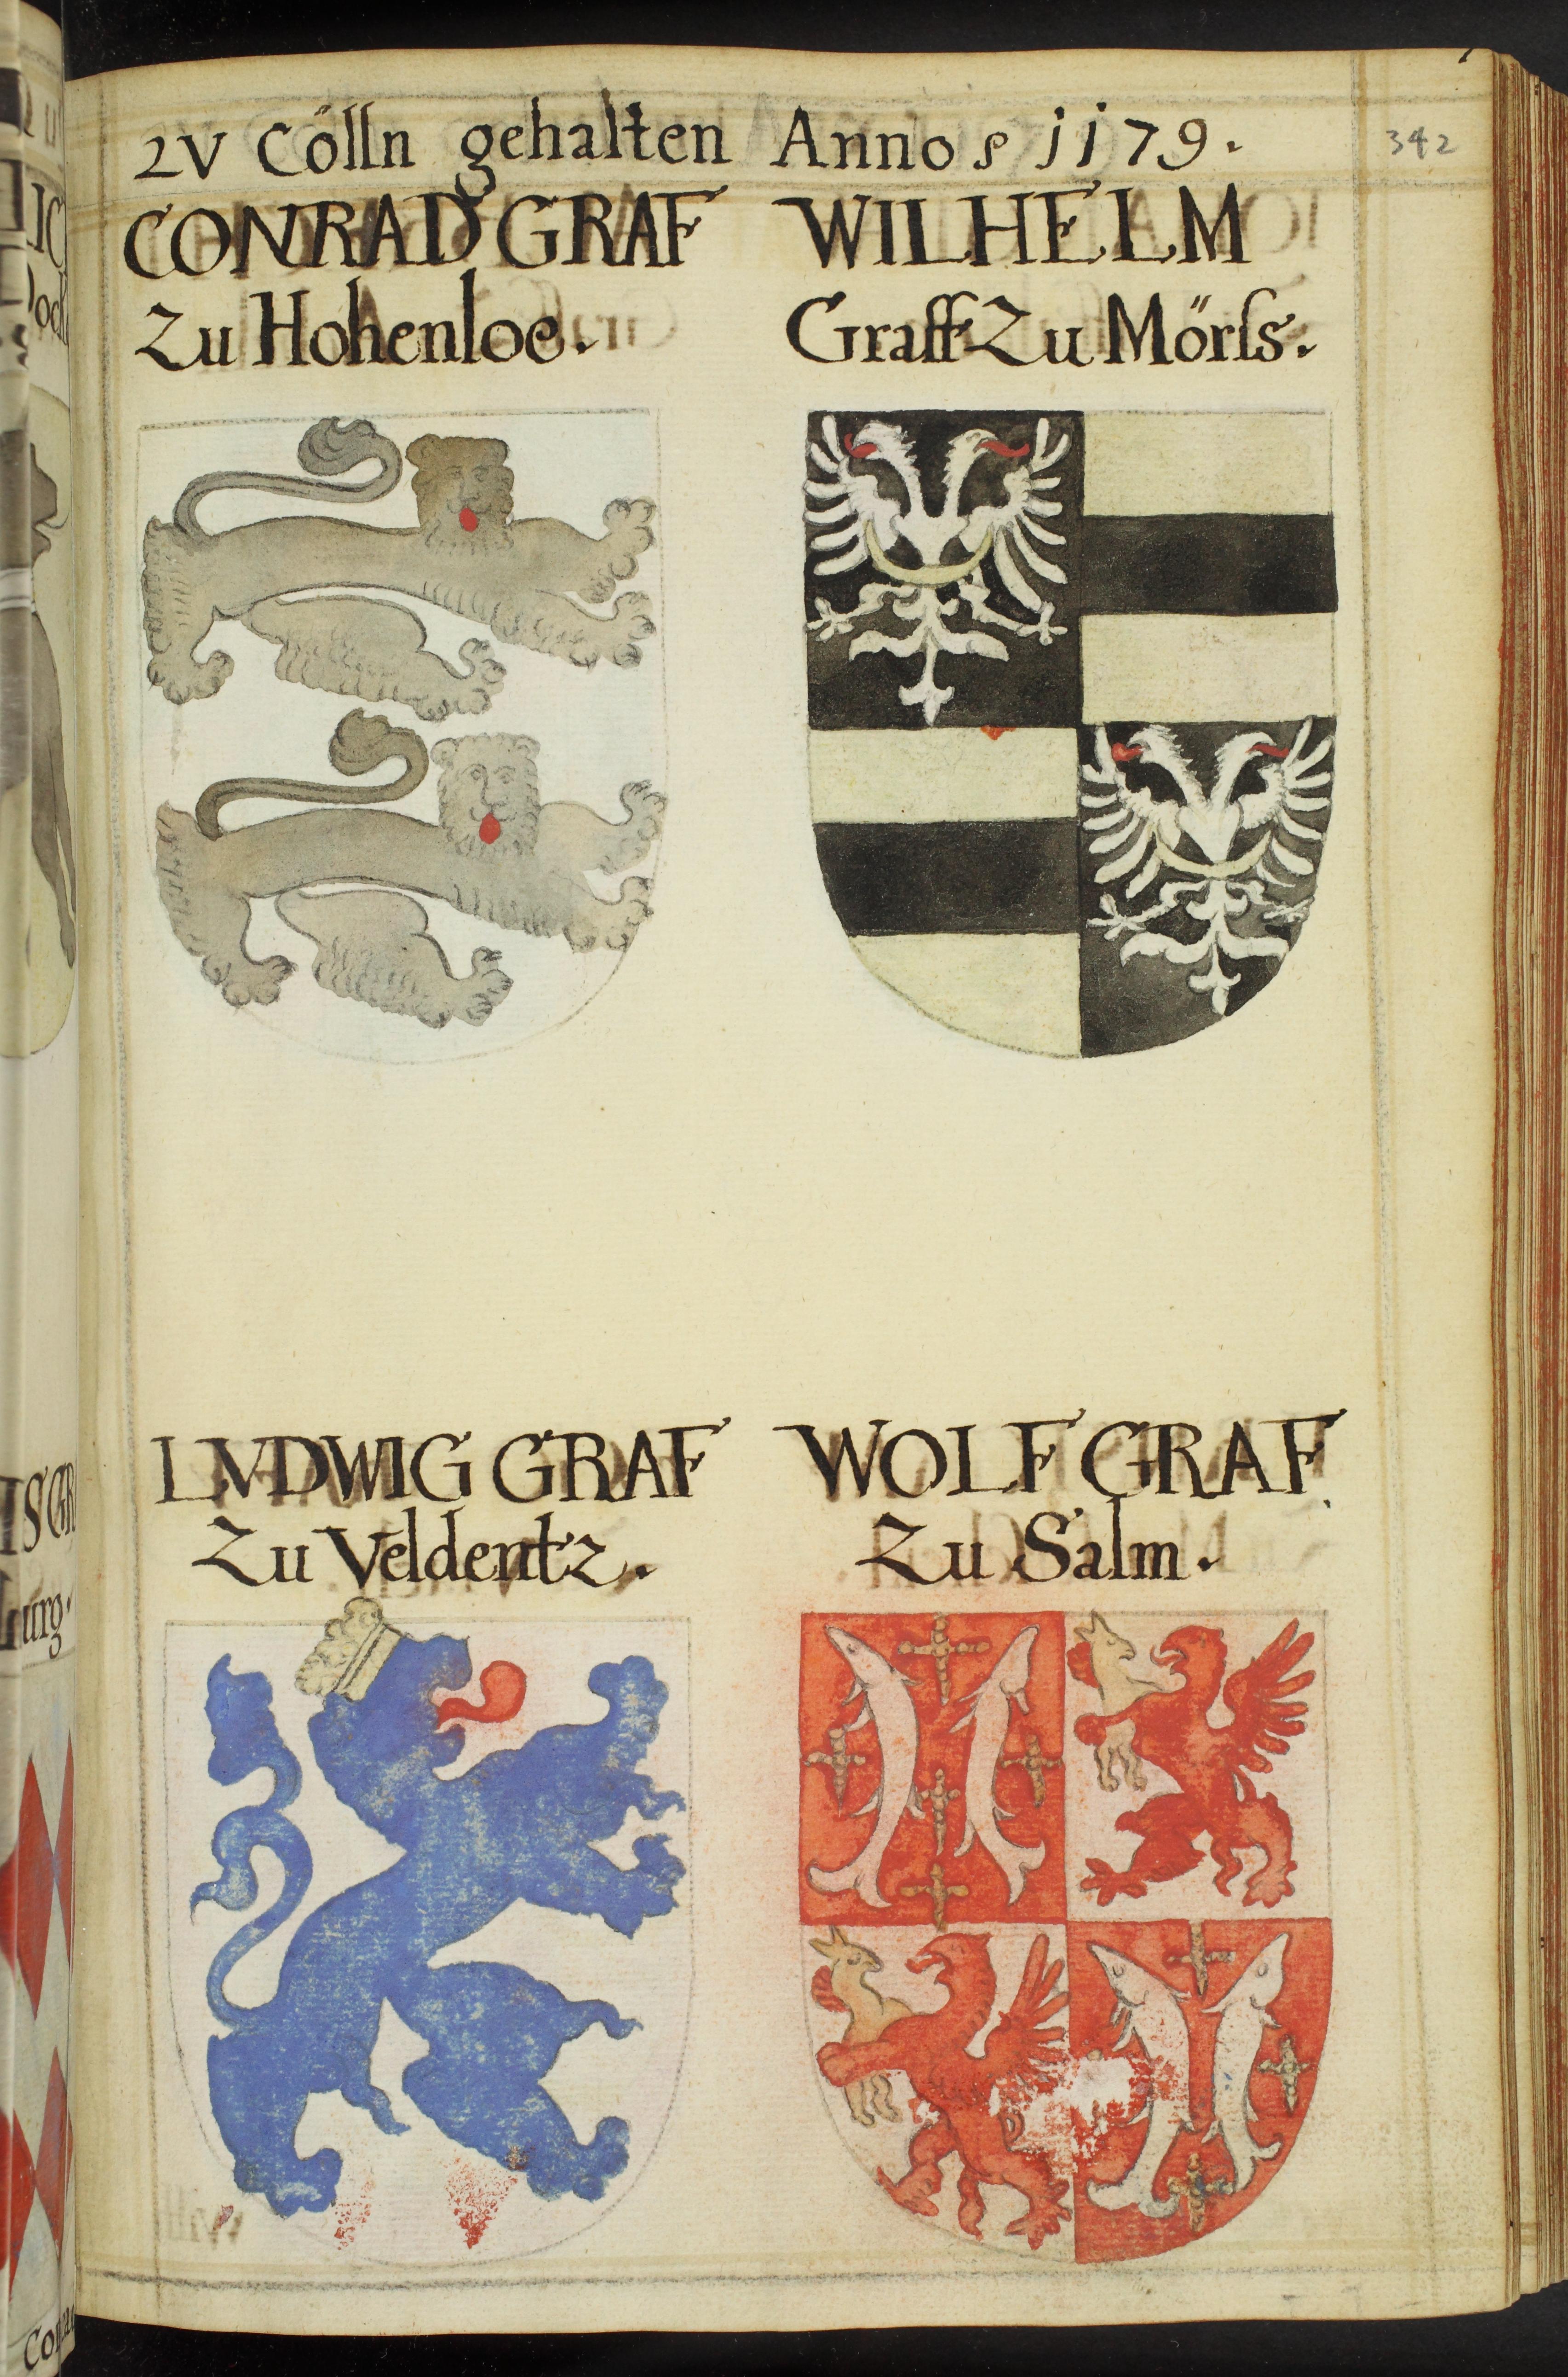 ZV Cölln gehalten Annos 1179.
342
CONRAD GRAF
Zu Hohenloe.
WILHELM
Graff Zu Mörſs.
LVDWIG GRAF
Zu Veldentz.
WOLF GRAF
Zu Salm.